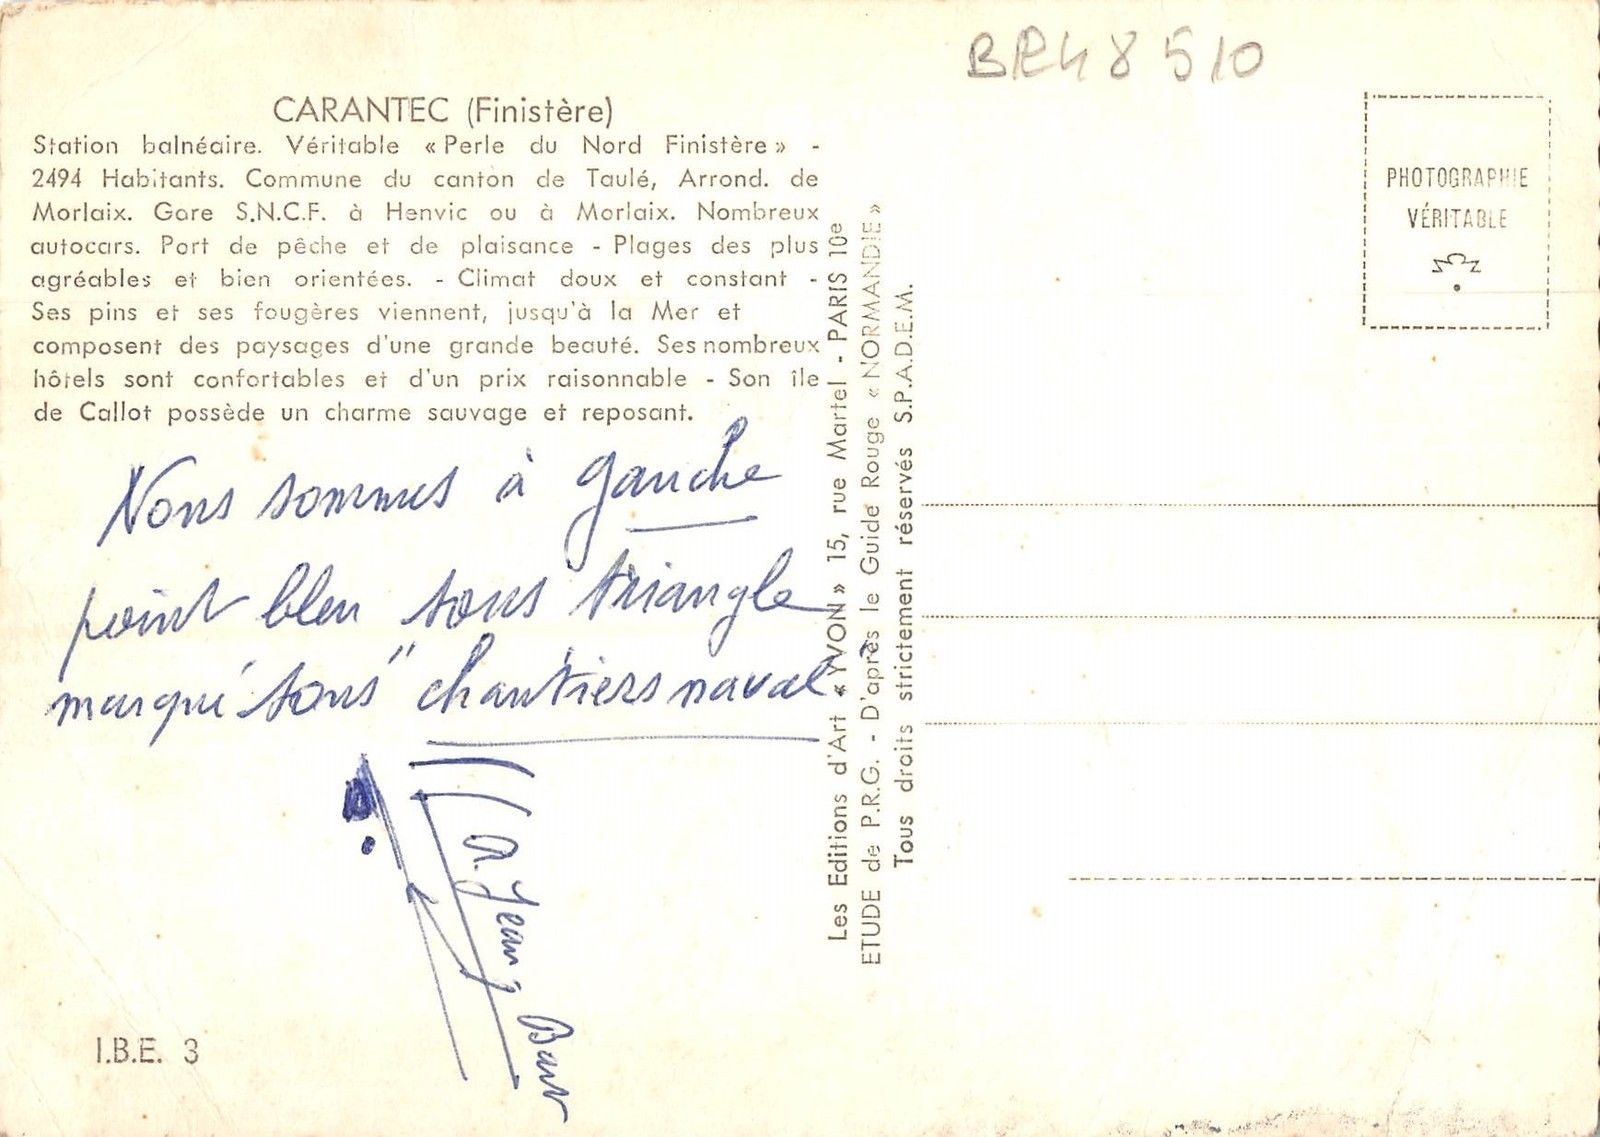 BR48510
CARANTEC (Finistère)
Station balnéaire. Véritable « Perle du Nord Finistère » -
2494 Habitants. Commune du canton de Taulé, Arrond. de
Morlaix. Gare S.N.C.F. à Henvic ou à Morlaix. Nombreux
autocars. Port de pêche et de plaisance - Plages des plus
agréables et bien orientées. - Climat doux et constant -
Ses pins et ses fougères viennent, jusqu'à la Mer et
composent des paysages d'une grande beauté. Ses nombreux
hôtels sont confortables et d'un prix raisonnable - Son île
de Callot possède un charme sauvage et reposant.
Nous sommes à gauche
point bleu sous triangle
marqué "sous" chantiers naval
R. Jean Bart
I.B.E. 3
Les Editions d'Art « YVON » 15, rue Martel - PARIS 10e
ETUDE de P.R.G. - D'après le Guide Rouge « NORMANDIE »
Tous droits strictement réservés S.P.A.D.E.M.
PHOTOGRAPHIE
VÉRITABLE